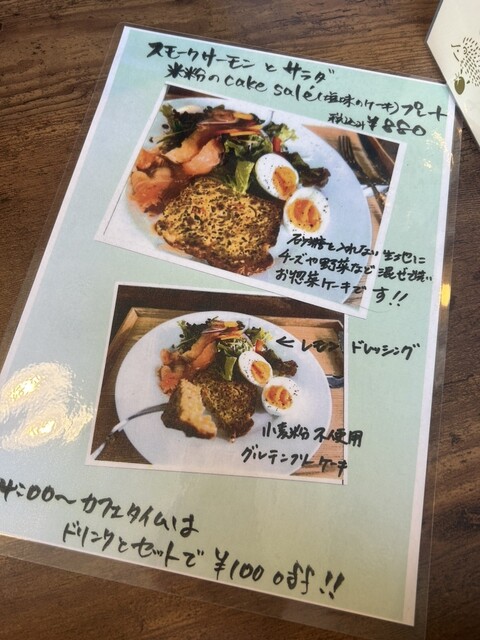 スモークサーモンとサラダ
米粉のcake salé(塩味のケーキ)プレート
税込み¥880
砂糖を入れない生地に
チーズや野菜など混ぜ焼い
お惣菜ケーキです!!
← レモンドレッシング
小麦粉不使用
グルテンフリーケーキ
4:00〜カフェタイムは
ドリンクとセットで¥100 off!!